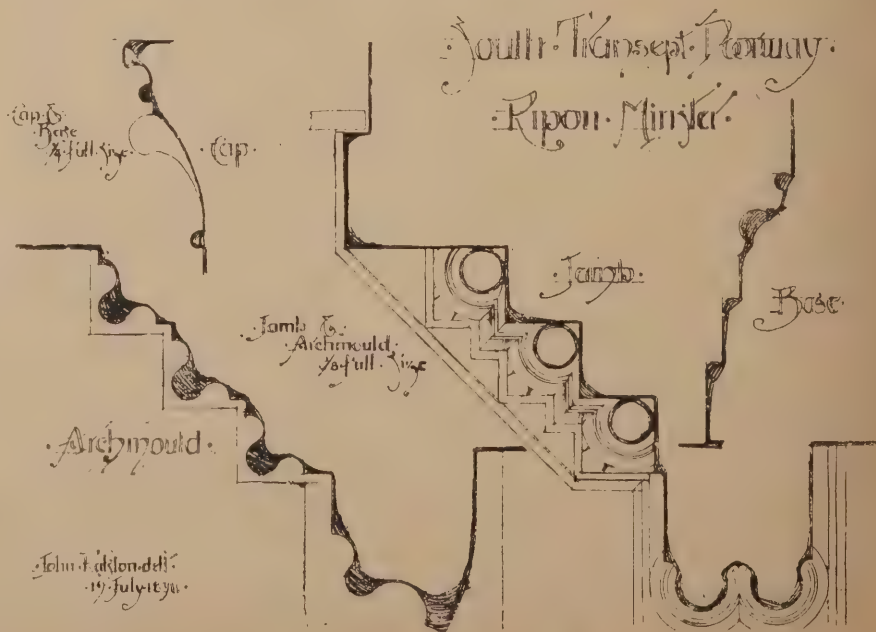 South·Transept·Doorway·
·Ripon·Minster·
·Cap &
Base
¼·full·size·
·Cap·
·Jamb·
·Base·
·Jamb &
Archmould·
⅛·full·size
·Archmould·
·John·
·19·July·